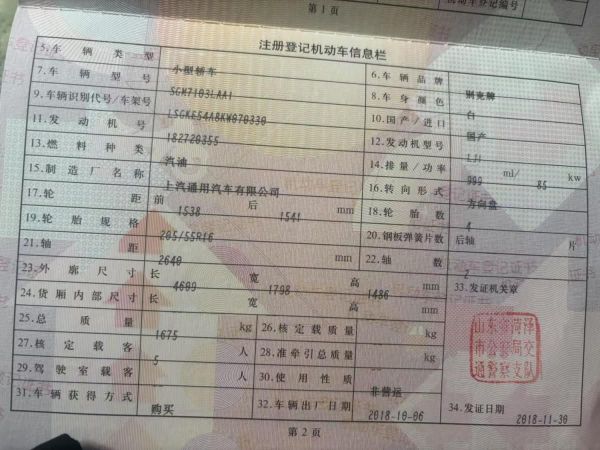 第1页
机动车登记编号
注册登记机动车信息栏
5.车辆类型 小型轿车 6.车辆品牌 别克牌
7.车辆型号 SGM7103LAA1 8.车身颜色 白
9.车辆识别代号/车架号 LSGKE54A8KW070330 10.国产/进口 国产
11.发动机号 182720355 12.发动机型号 LJI
13.燃料种类 汽油 14.排量/功率 999 ml/ 85 kw
15.制造厂名称 上汽通用汽车有限公司 16.转向形式 方向盘
17.轮距 前 1538 后 1541 mm 18.轮胎数 4
19.轮胎规格 205/55R16 20.钢板弹簧片数 后轴 片
21.轴距 2640 mm 22.轴数 2
23.外廓尺寸 长 4609 宽 1798 高 1486 mm 33.发证机关章
24.货厢内部尺寸 长 宽 高 mm
25.总质量 1675 kg 26.核定载质量 kg
27.核定载客 5 人 28.准牵引总质量 kg
29.驾驶室载客 人 30.使用性质 非营运
31.车辆获得方式 购买 32.车辆出厂日期 2018-10-06 34.发证日期 2018-11-30
山东省菏泽
市公安局交
通警察支队
第2页